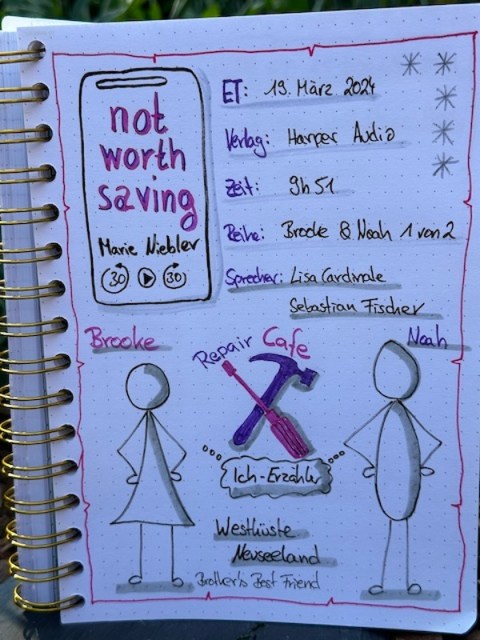 not
worth
saving
Marie Niebler
30 30
ET: 19. März 2024
Verlag: Harper Audio
Zeit: 9h 51
Reihe: Brooke & Noah 1 von 2
Sprecher: Lisa Cardinale
Sebastian Fischer
Brooke
Repair Cafe
Noah
Ich-Erzähler
Westküste
Neuseeland
Brother's Best Friend